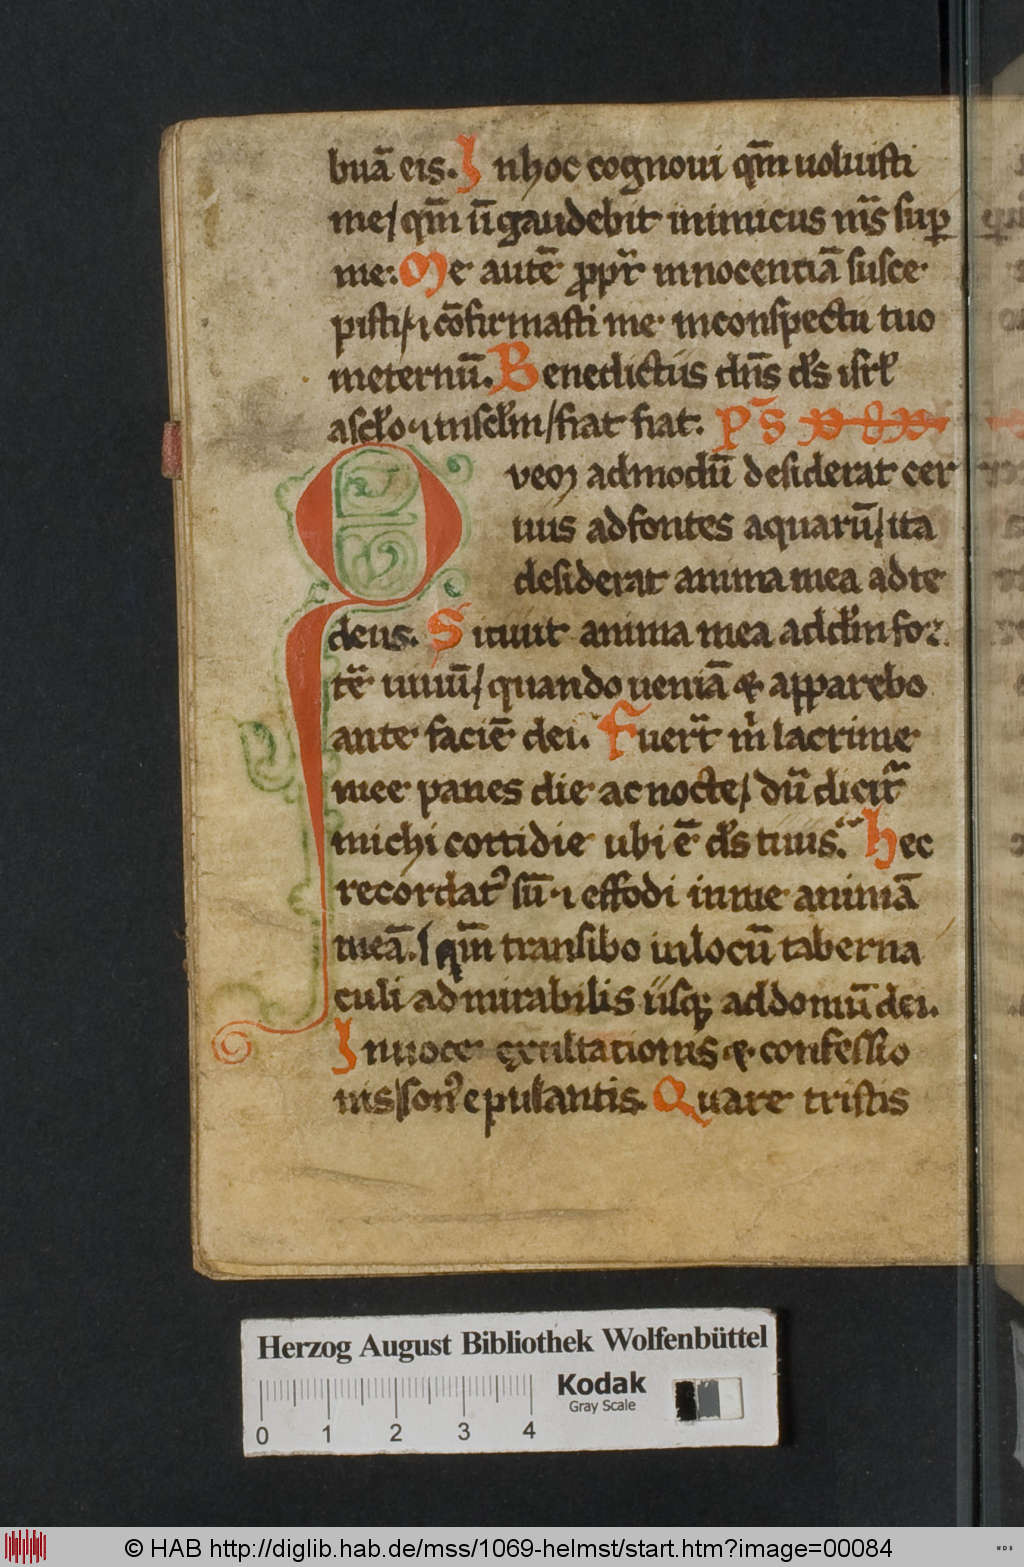 buā eis. In hoc cognoui qm̄ uoluisti
me / qm̄ n̄ gaudebit inimicus m̄s sup
me. Me autē ppt̄ innocentiā susce
pisti / ⁊ cōfirmasti me in conspectu tuo
in eternū. Benedictus dn̄s ds isrl
a sclo ⁊ in sclm / fiat fiat. Ps
Quem admodū desiderat cer
uus ad fontes aquarū / ita
desiderat anima mea ad te
deus. Sitiuit anima mea ad dm fon
tē uiuū / quando ueniā & apparebo
ante faciē dei. Fuert̄ m lacrime
mee panes die ac nocte / dū dicit̄
michi cottidie ubi ē ds tuus. Hec
recordat sū ⁊ effodi in me animā
meā. / qm̄ transibo in locū taberna
culi admirabilis usq; ad domū dei.
In uoce exultationis & confessio
nis / son epulantis. Quare tristis
Herzog August Bibliothek Wolfenbüttel
Kodak
Gray Scale
0 1 2 3 4
© HAB http://diglib.hab.de/mss/1069-helmst/start.htm?image=00084